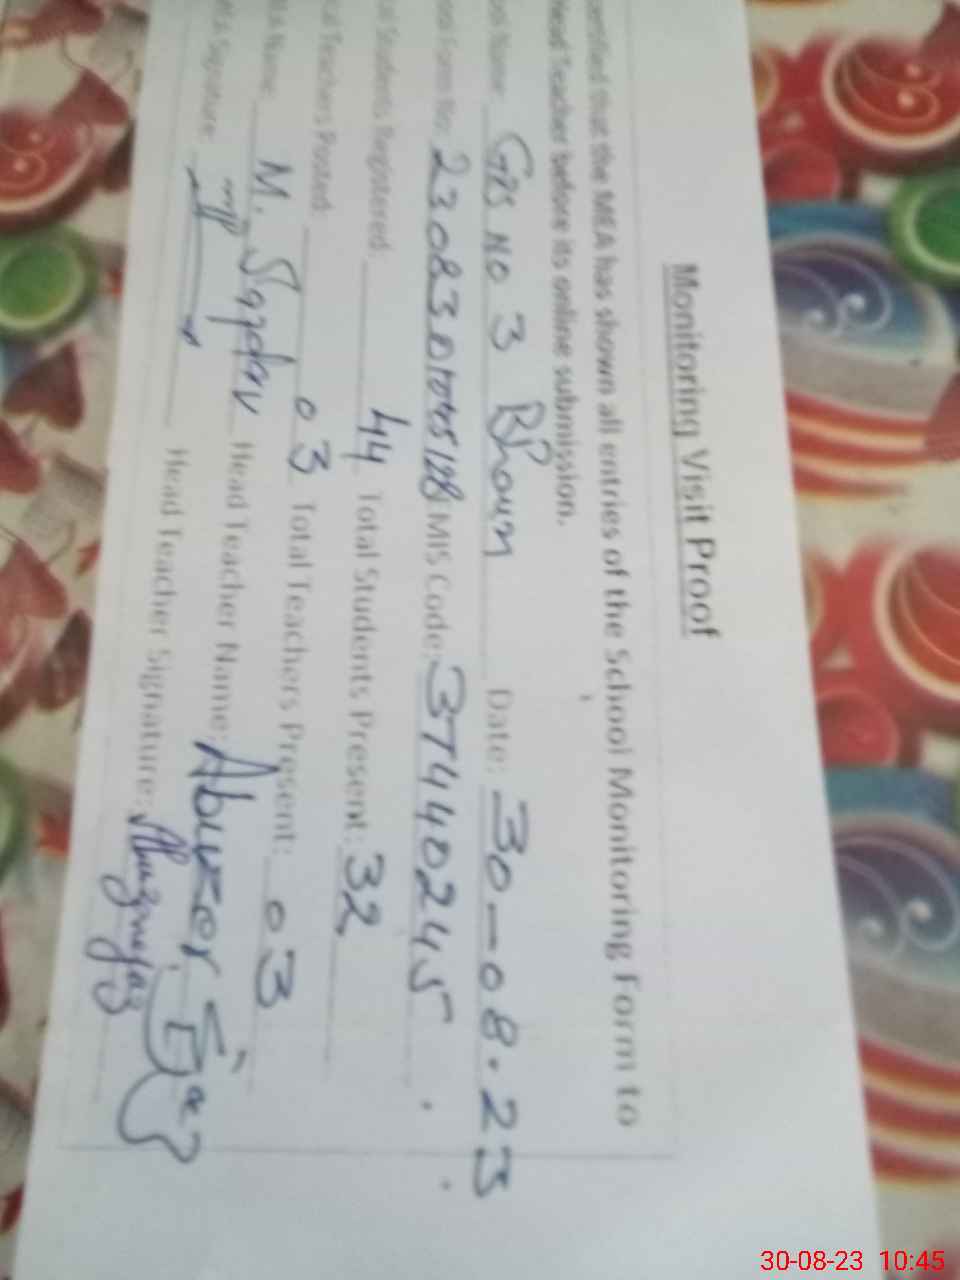 Monitoring Visit Proof
certified that the MEA has shown all entries of the School Monitoring Form to
Head Teacher before its online submission.
Name: GPS NO 3 Bhoun Date: 30-08.23
Form No: MIS Code: 37440245
Students Registered: 44 Total Students Present: 32
Teachers Posted: 03 Total Teachers Present: 03
Name: M. Head Teacher Name: Abuzar Ejaz
Signature: Head Teacher Signature:
30-08-23 10:45